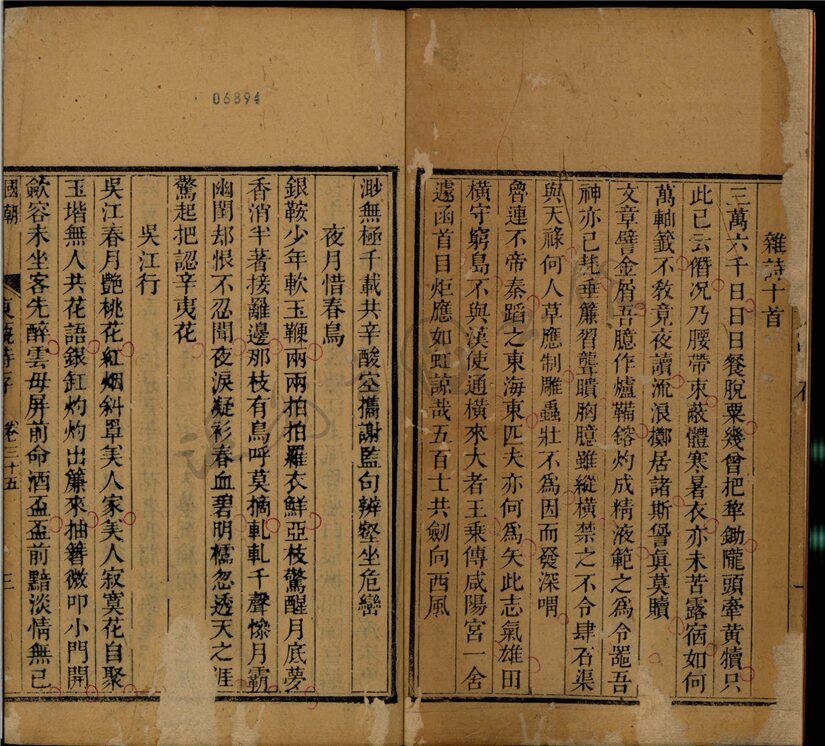 雜詩十首
三萬六千日日日餐脫粟幾曾把犂鋤隴頭牽黃犢只
此已云僭况乃腰帶束蔽體寒暑衣亦未苦露宿如何
萬軸籤不敎竟夜讀流浪擲居諸斯諐眞莫贖
文章擘金屑吾臆作爐鞴鎔灼成精液範之爲令噐吾
神亦已耗垂簾習聾瞶胸臆雖縱橫禁之不令肆石渠
與天祿何人草應制雕蟲壯不爲因而發深喟
魯連不帝秦蹈之東海東匹夫亦何爲矢此志氣雄田
橫守窮島不與漢使通橫來大者王乘傳咸陽宮一舍
遽函首目炬應如虹諒哉五百士共劒向西風
06894
渺無極千載共辛酸空攜謝監句辨壑坐危巒
夜月惜春鳥
銀鞍少年軟玉鞭兩兩拍拍羅衣鮮亞枝驚醒月底夢
香消半著接離邊那枝有鳥呼莫摘軋軋千聲慘月霸
幽閨却恨不忍聞夜淚凝衫春血碧明櫺忽透天之涯
驚起把認辛夷花
吳江行
吳江春月艷桃花紅烟斜罩美人家美人寂寞花自聚
玉堦無人共花語銀缸灼灼出簾來抽簪微叩小門開
斂容未坐客先醉雲毋屏前命酒盃盃前黯淡情無已
國朝
詩存
卷三十五
三